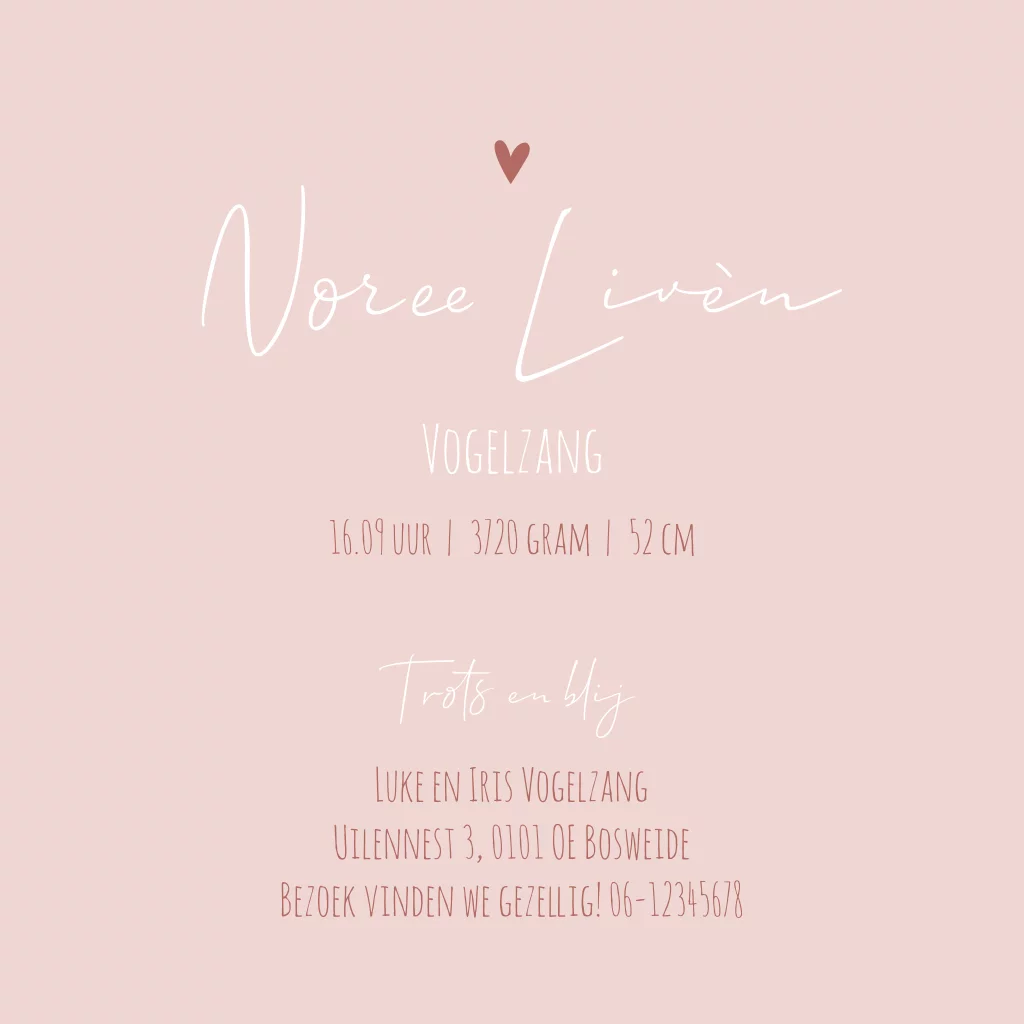 Noree Livèn
VOGELZANG
16.09 UUR | 3720 GRAM | 52 CM
Trots en blij
LUKE EN IRIS VOGELZANG
UILENNEST 3, 0101 OE BOSWEIDE
BEZOEK VINDEN WE GEZELLIG! 06-12345678